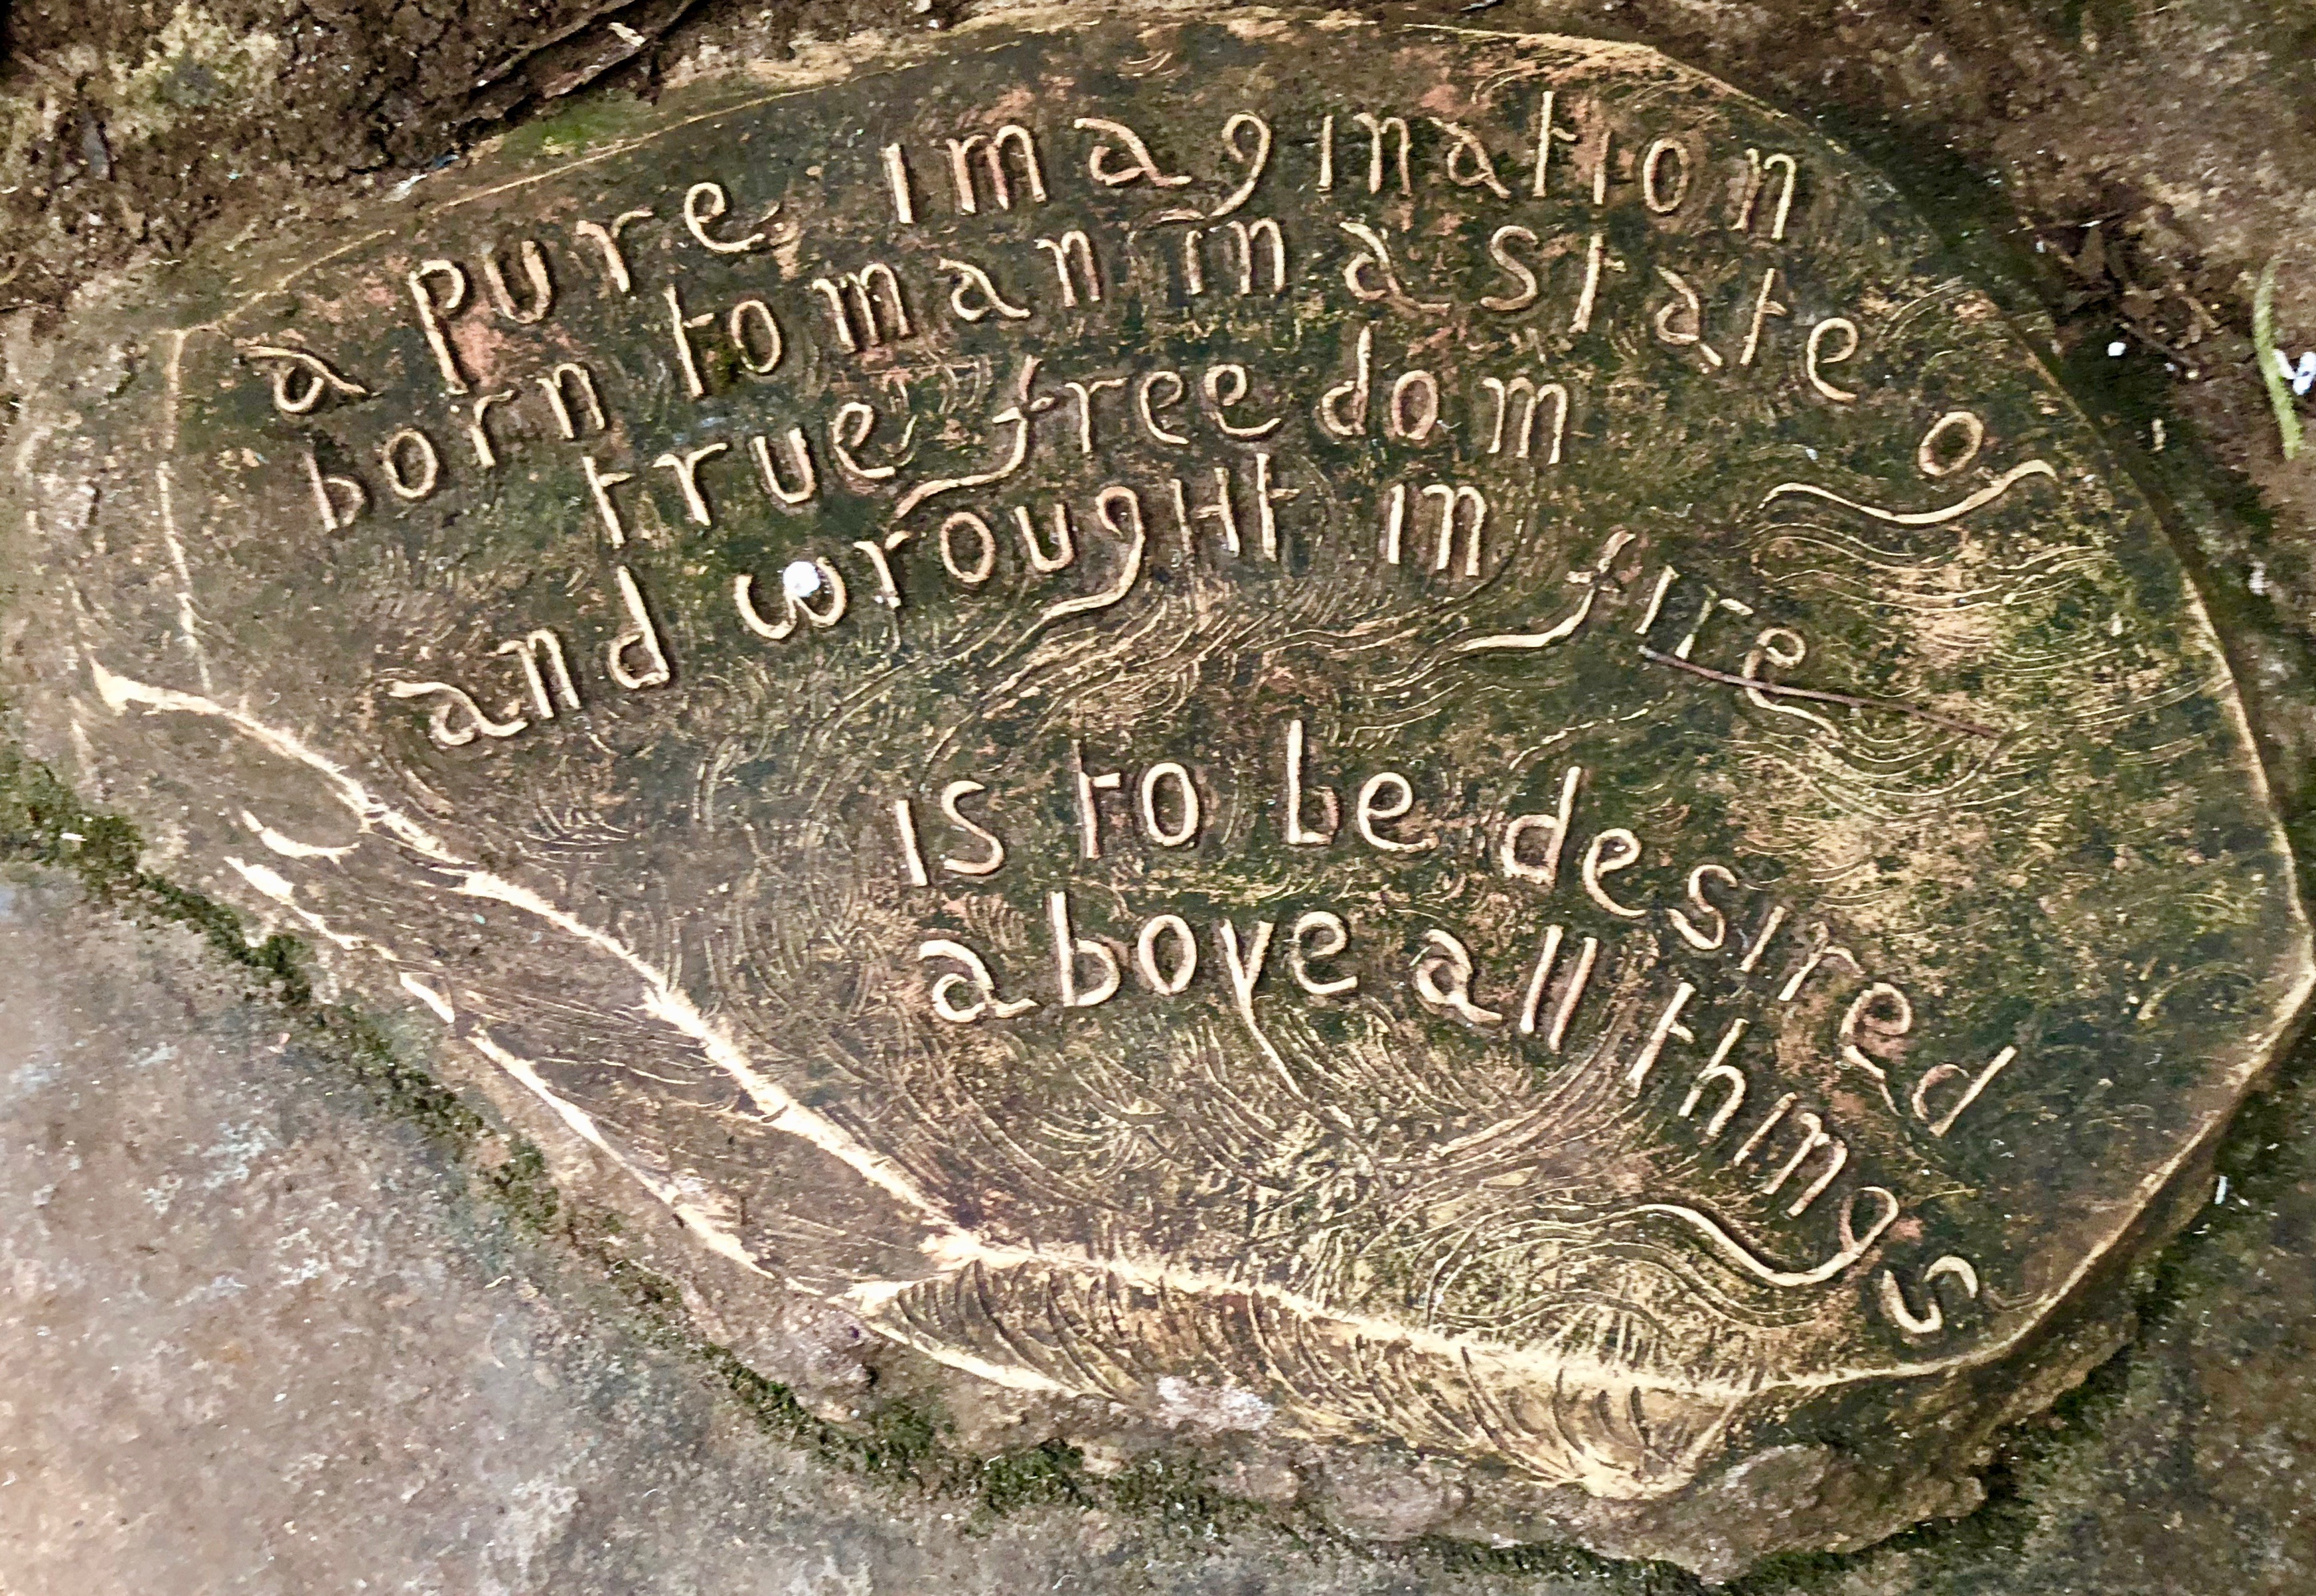 a pure imagination
born to man in a state of
true freedom
and wrought in fire
is to be desired
above all things